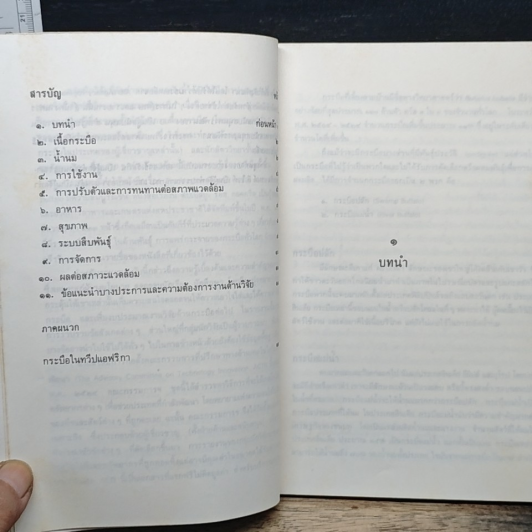 สารบัญ
๑. บทนำ ก่อนหน้า
๒. เนื้อกระบือ
๓. น้ำนม
๔. การใช้งาน
๕. การปรับตัวและการทนทานต่อสภาพแวดล้อม
๖. อาหาร
๗. สุขภาพ
๘. ระบบสืบพันธุ์
๙. การจัดการ
๑๐. ผลต่อสภาวะแวดล้อม
๑๑. ข้อแนะนำบางประการและความต้องการงานด้านวิจัย
ภาคผนวก
กระบือในทวีปแอฟริกา
๑
บทนำ